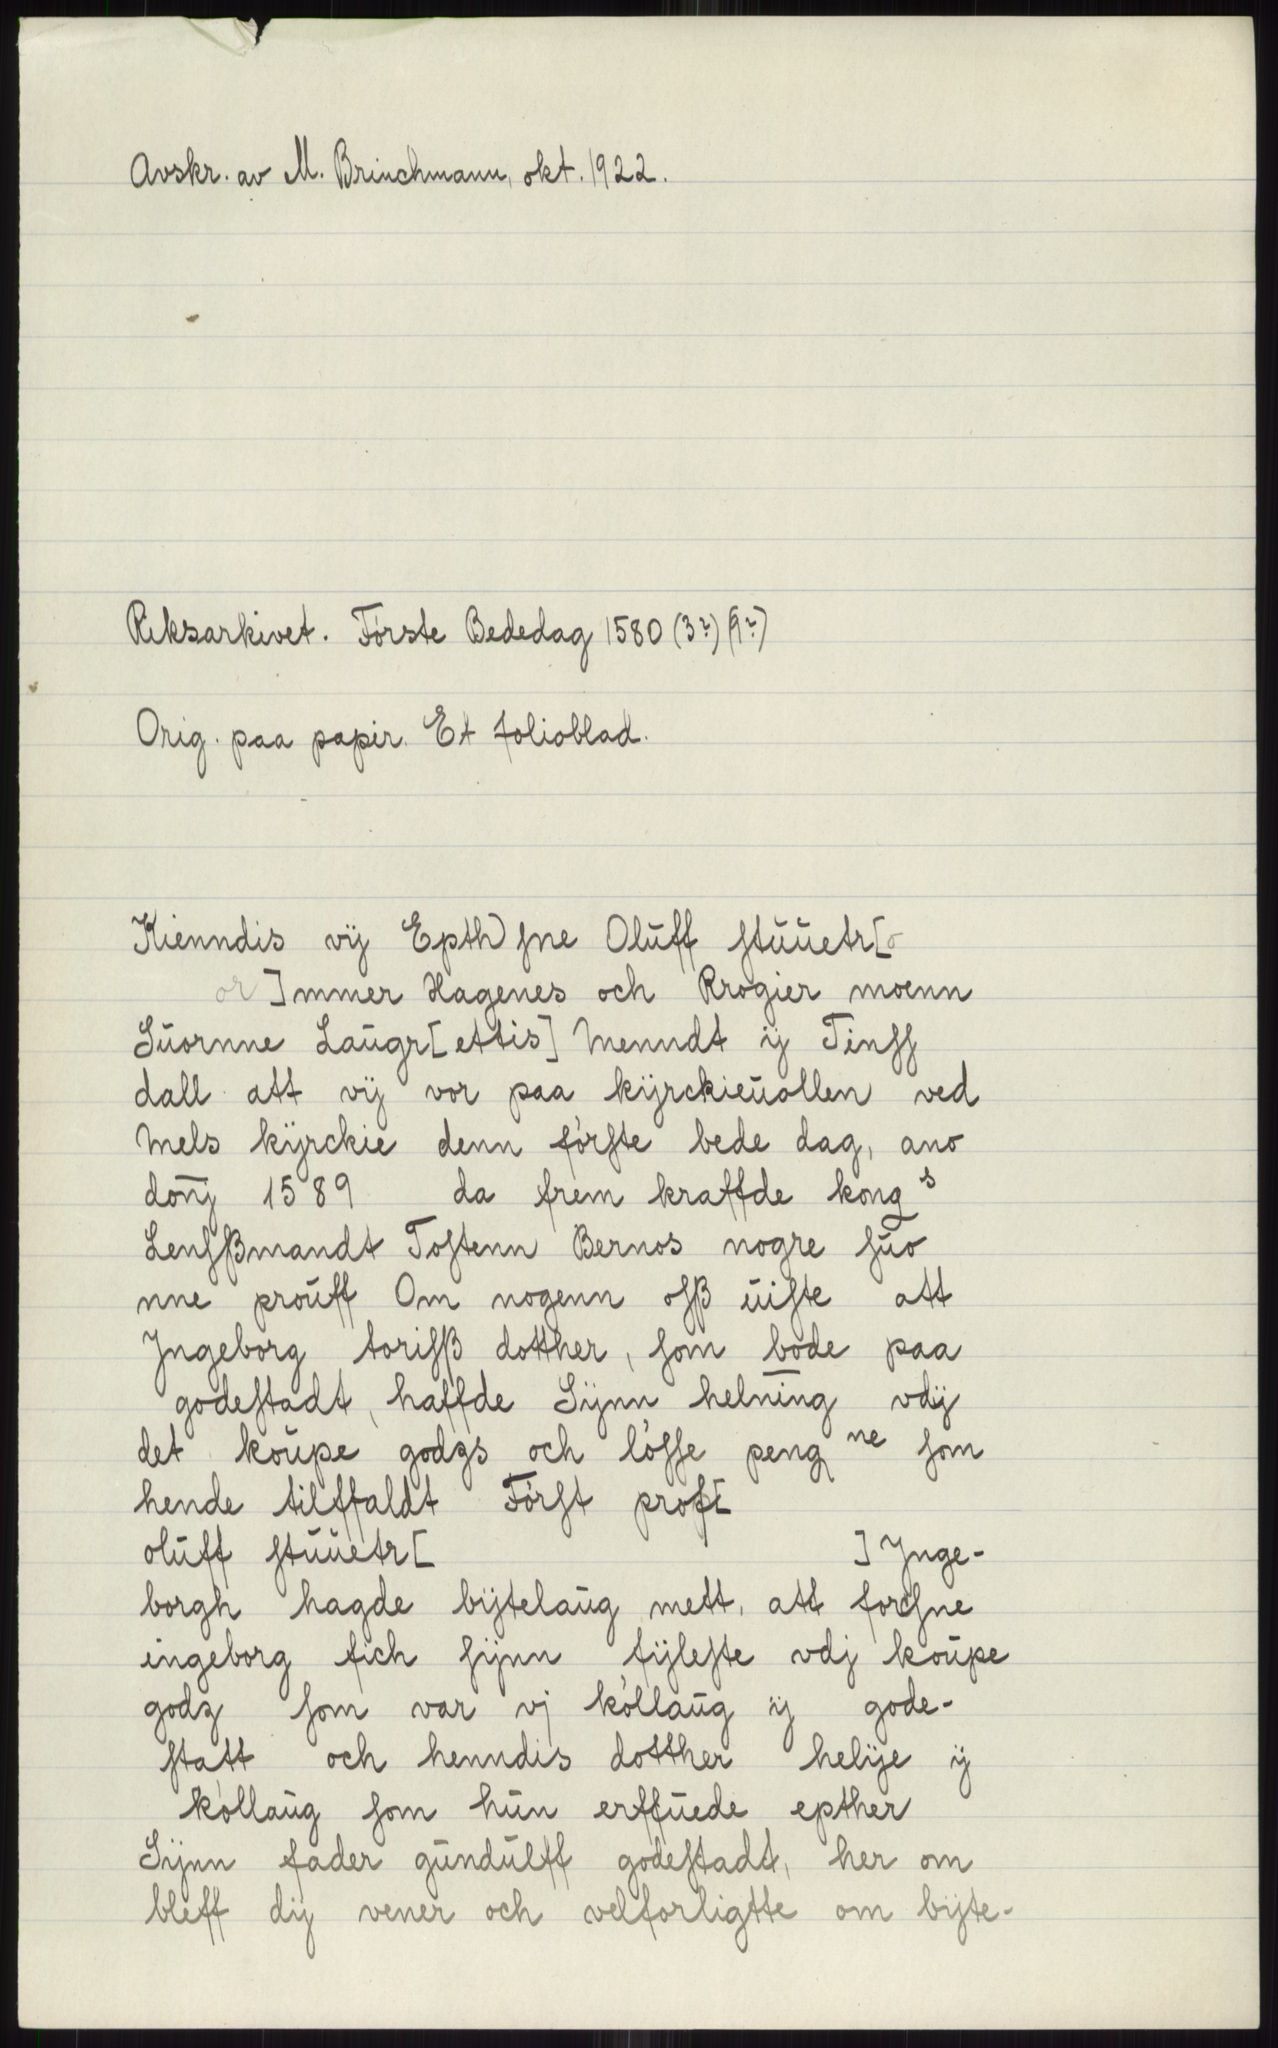 Avskr. av M. Brinchmann, okt. 1922.
Riksarkivet. Förste Bededag 1580 (3?) (9?)
Orig. paa papir. Et folioblad.
Kienndis vÿ Epth) ſne Olŭff ſtŭŭetr[o
or ]mmer Hagenes och Rrogier moenn
Sŭornne Laŭgr[ettis] Menndt ÿ Tinſſ
dall att vÿ vor paa kÿrckieŭollen ved
Mels kÿrckie denn förſte bede dag, ano
donj 1589 da frem kraffde kong s
Lenſßmandt Toſtenn Bernos nogre ſŭo
nne proŭff Om nogenn oſß ŭiſte att
Jngeborg toriſß dotther, ſom bode paa
godeſtadt, haffde Sÿnn helning vdÿ
det koŭpe godzs och löſſe peng ne ſom
hende tilffaldt Förſt prof[
olŭff ſtŭŭetr[ ] Jnge-
borgh hagde bÿtelaŭg mett, att forſne
ingeborg fich ſÿnn fÿleſte vdj koŭpe
godz ſom var vj köllaŭg ÿ gode-
ſtatt och henndis dotther helÿe ÿ
köllaŭg ſom hŭn erffŭede epther
Sÿnn fader gŭndŭlff godeſtadt, her om
bleff dÿ vener och velforligtte om bÿte-